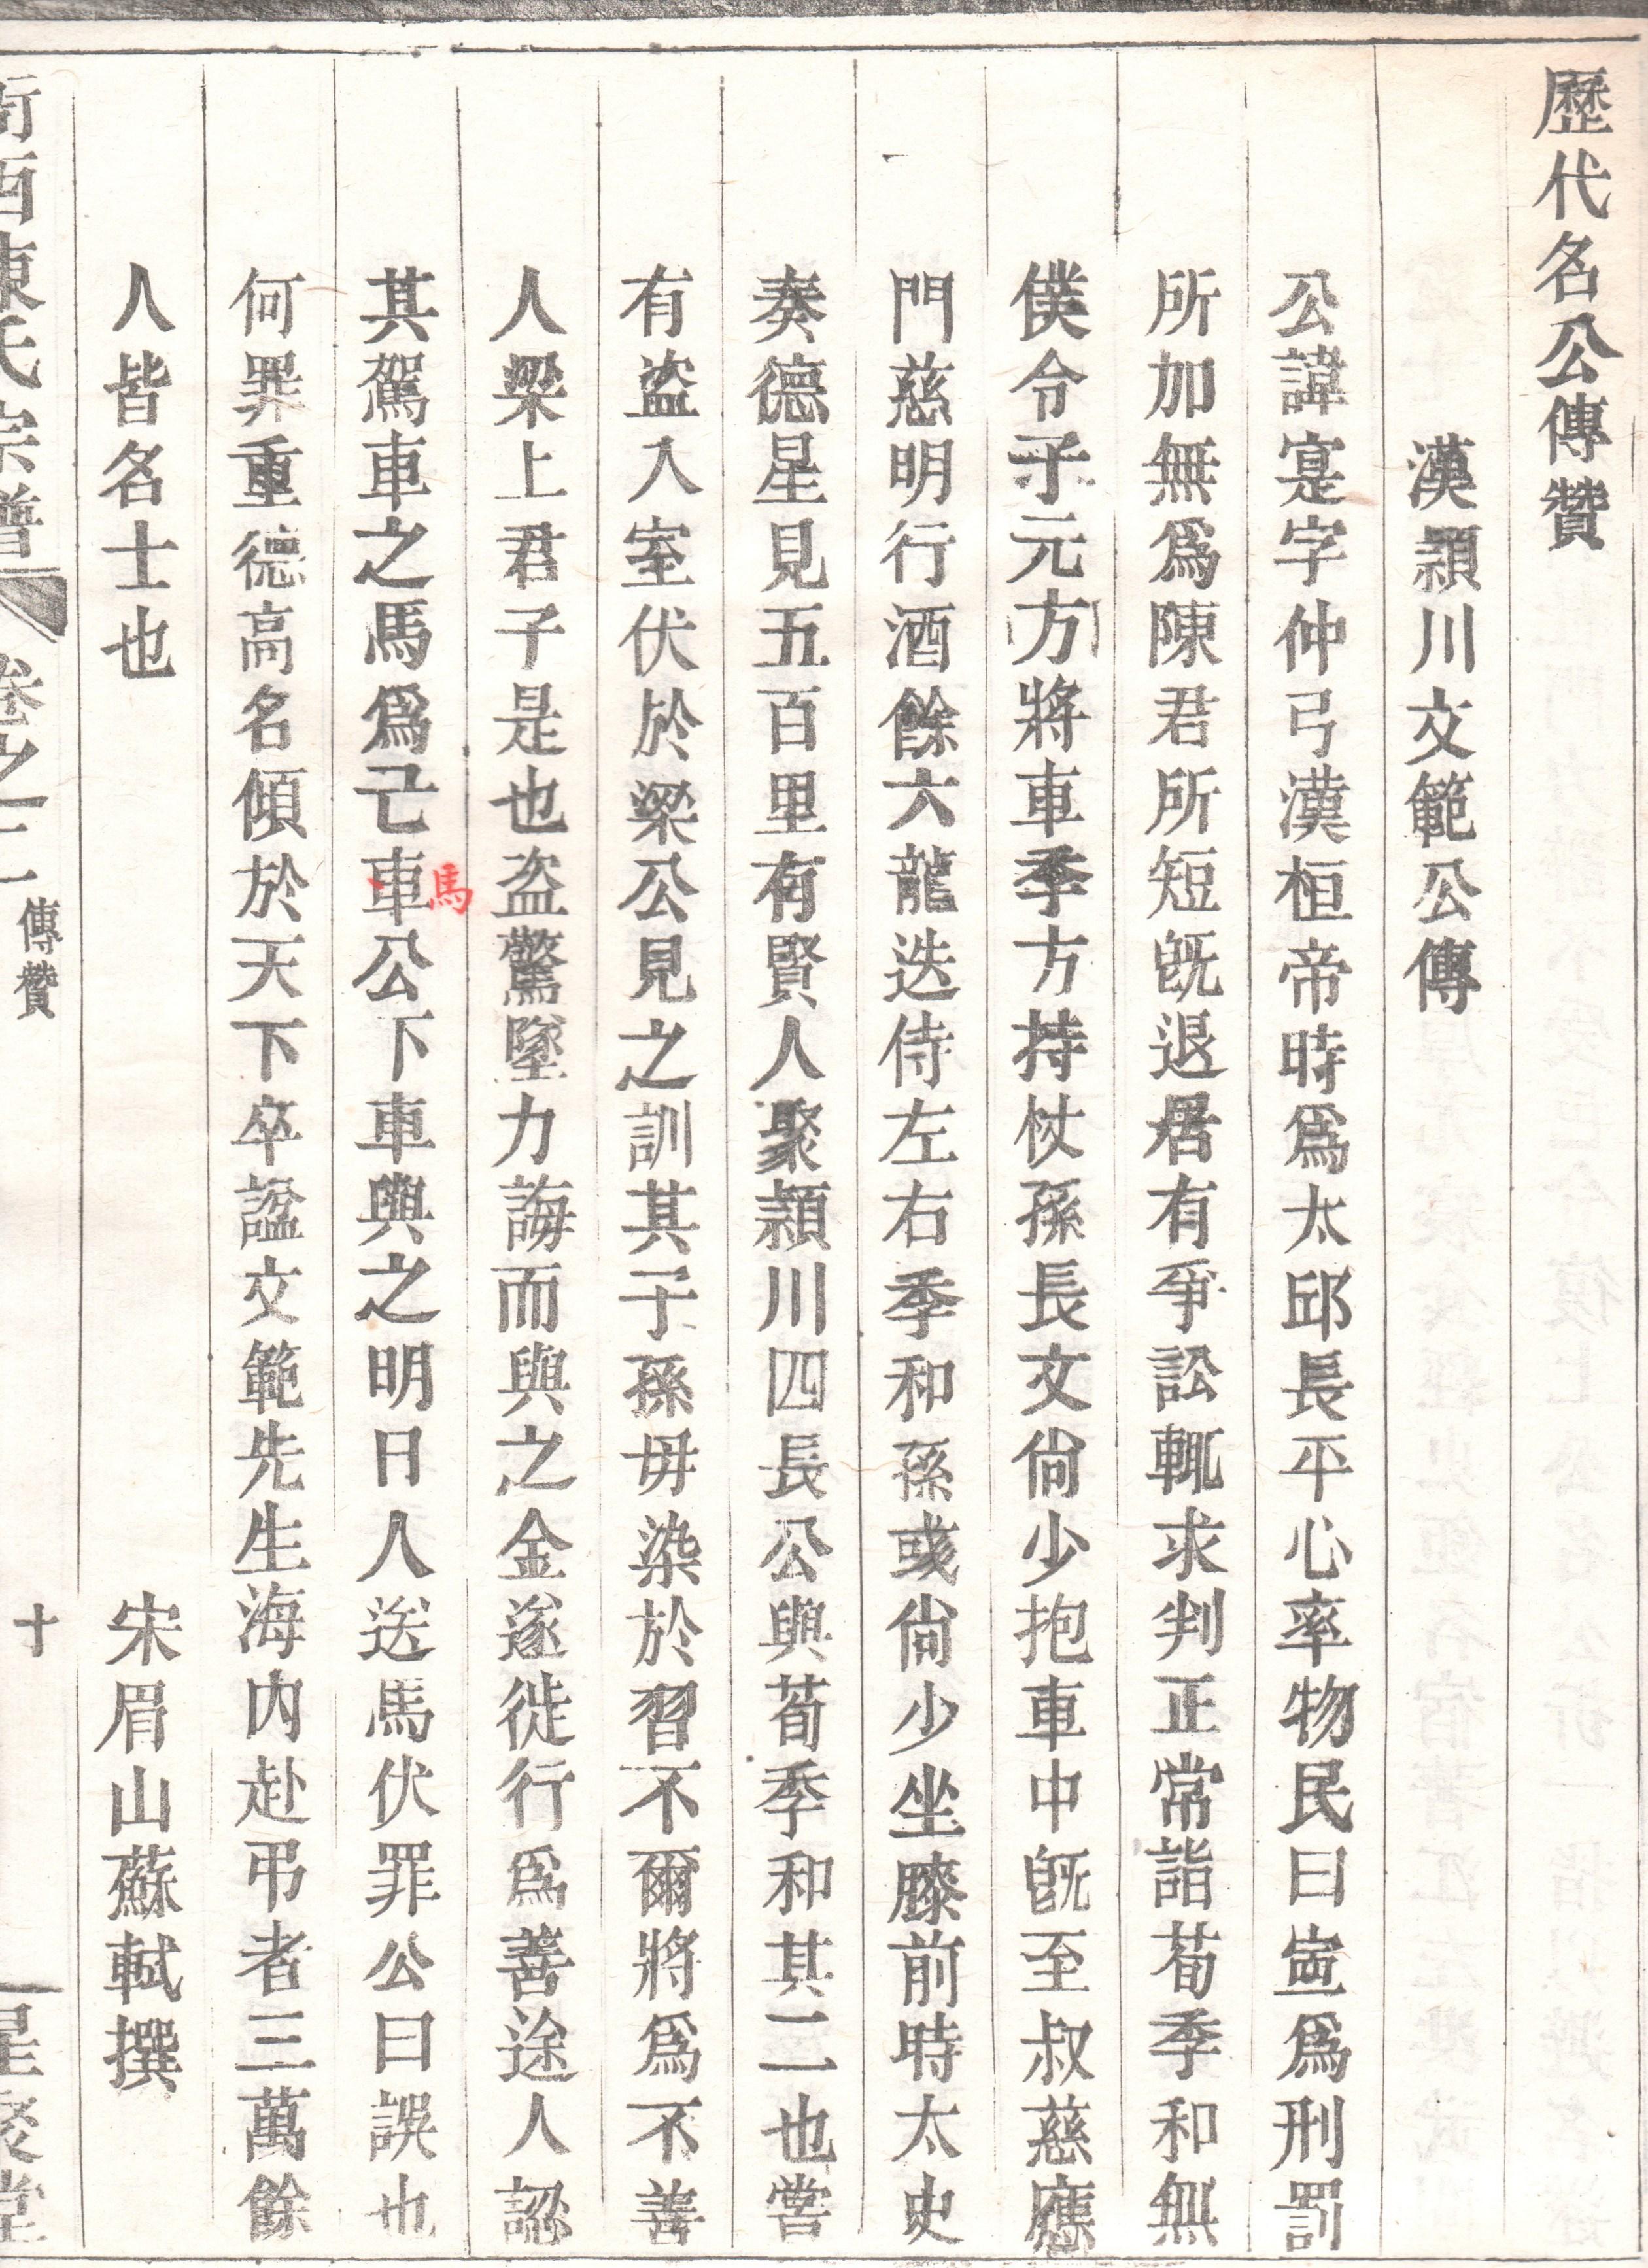 歷代名公傳贊
漢潁川文範公傳
公諱寔字仲弓漢桓帝時爲太邱長平心率物民曰寍爲刑罰
所加無爲陳君所短旣退居有爭訟輒求判正常詣荀季和無
僕令子元方將車季方持杖孫長文尙少抱車中旣至叔慈應
門慈明行酒餘六龍迭侍左右季和孫彧尙少坐膝前時太史
奏德星見五百里有賢人聚潁川四長公與荀季和其二也嘗
有盜入室伏於梁公見之訓其子孫毋染於習不爾將爲不善
人梁上君子是也盜驚墜力誨而與之金遂徙行爲善途人認
其駕車之馬爲己車公下車與之明日人送馬伏罪公曰誤也
馬
何罪重德高名傾於天下卒諡文範先生海內赴弔者三萬餘
人皆名士也
宋眉山蘇軾撰
西陳氏宗譜
卷之二
傳贊
十
星聚堂